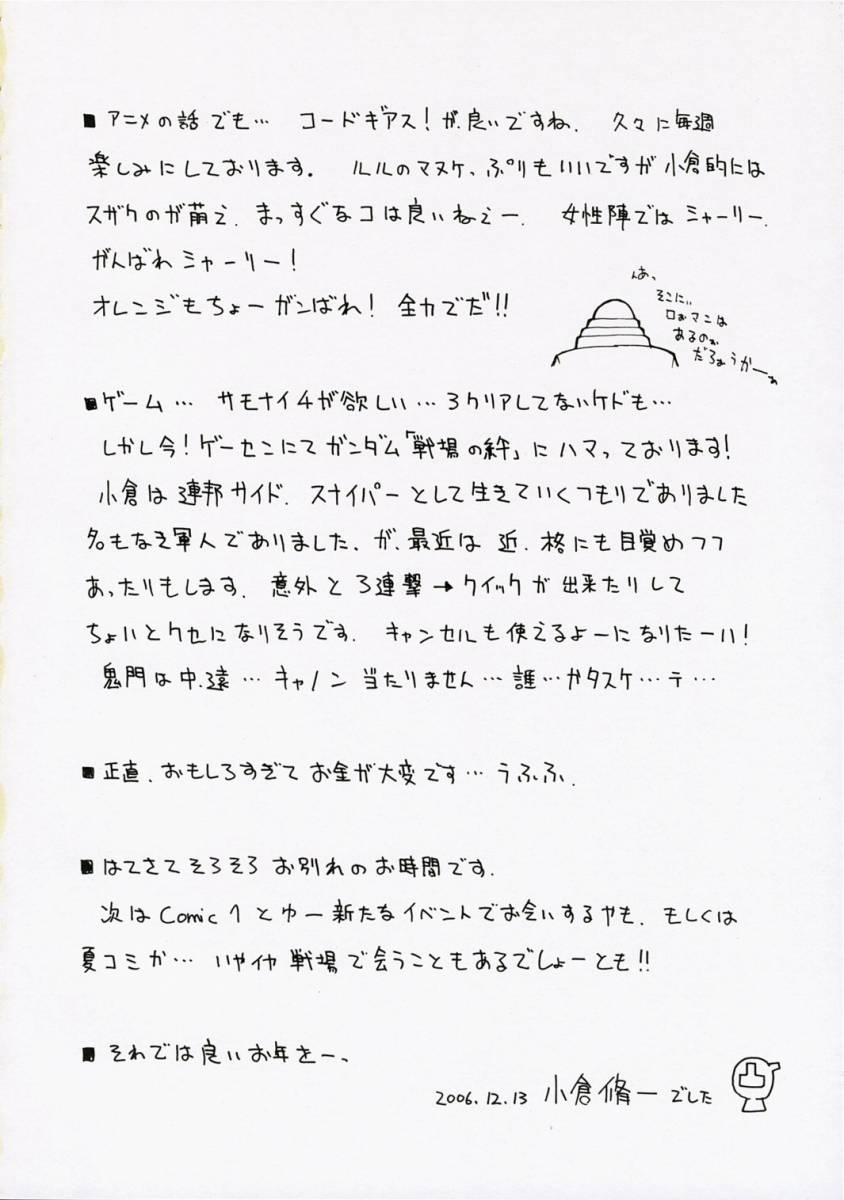 ■アニメの話でも… コードギアス!が良いですね、久々に毎週
楽しみにしております。 ルルのマヌケっぷりもいいですが小倉的には
スザクのが萌え、まっすぐなコは良いねぇー、 女性陣ではシャーリー、
がんばれシャーリー!
オレンジもちょーガンばれ! 全力でだ!!
んあ、
そこにぃ
ロぉマンは
あるのぉ
だろぉうかーぁ
■ゲーム… サモナイ4が欲しい…3クリアしてないケドも…
しかし今!ゲーセンにてガンダム「戦場の絆」にハマっております!
小倉は連邦サイド、スナイパーとして生きていくつもりでありました
名もなき軍人でありました、が、最近は 近、格にも目覚めつつ
あったりもします、意外と3連撃→クイックが出来たりして
ちょいとクセになりそうです、 キャンセルも使えるよーになりたーい!
鬼門は中、遠…キャノン当たりません…誰…かタスケ…テ…
■正直、おもしろすぎてお金が大変です…うふふ、
■はてさてそろそろお別れのお時間です、
次はComic1とゆー新たなイベントでお会いするやも、もしくは
夏コミか… いやイヤ戦場で会うこともあるでしょーとも!!
■それでは良いお年をー、
2006.12.13 小倉脩一でした